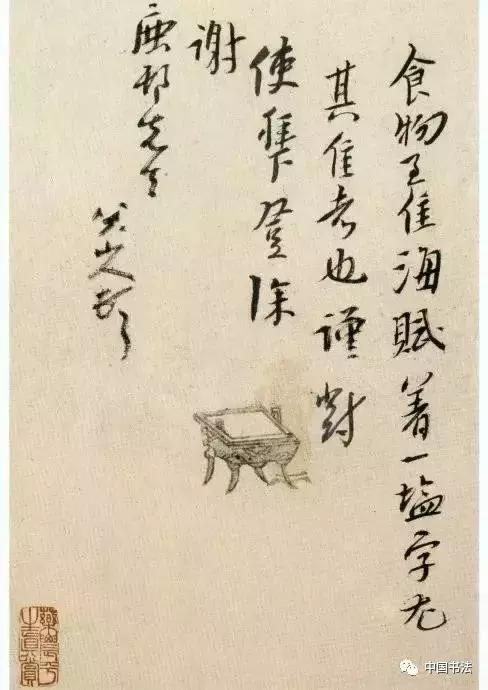 食物至佳海賦着一塩字尤
其佳者也謹對
使拜登深
謝
鹿邨先生
八大山人
中国书法